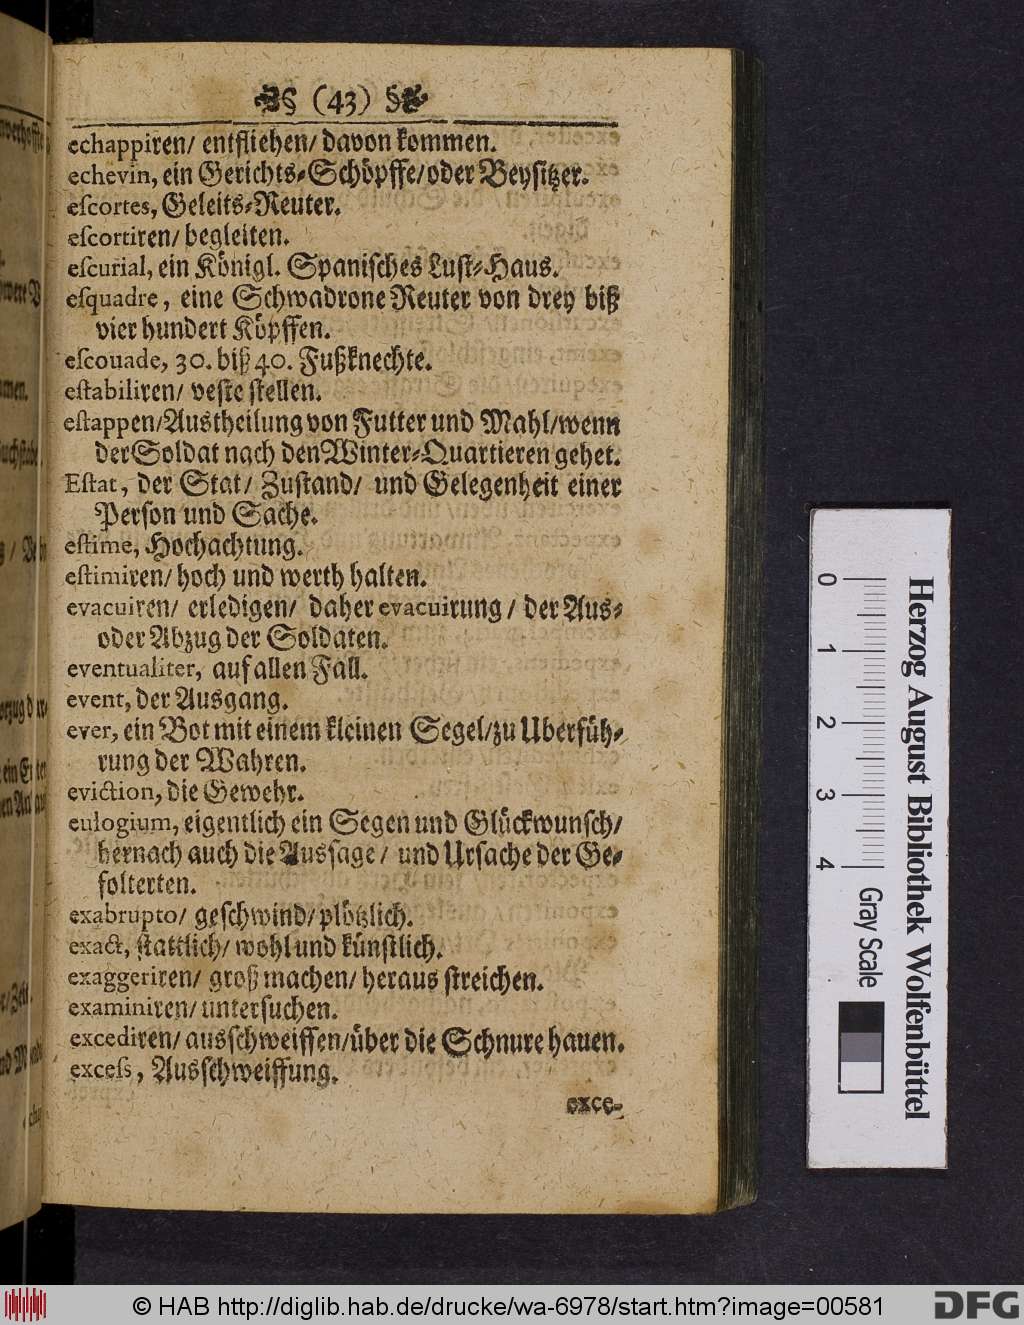 (43)
echappiren/ entfliehen/ davon kommen.
echevin, ein Gerichts-Schöpffe/oder Beysitzer.
eſcortes, Geleits-Reuter.
eſcortiren/ begleiten.
eſcurial, ein Königl. Spanisches Lust-Haus.
eſquadre, eine Schwadrone Reuter von drey biß
vier hundert Köpffen.
eſcouade, 30. biß 40. Fußknechte.
eſtabiliren/ veste stellen.
eſtappen/Austheilung von Futter und Mahl/wenn
der Soldat nach den Winter-Quartieren gehet.
Eſtat, der Stat/ Zustand/ und Gelegenheit einer
Person und Sache.
eſtime, Hochachtung.
eſtimiren/ hoch und werth halten.
evacuiren/ erledigen/ daher evacuirung/ der Aus-
oder Abzug der Soldaten.
eventualiter, auf allen Fall.
event, der Ausgang.
ever, ein Bot mit einem kleinen Segel/zu Uberfüh-
rung der Wahren.
eviction, die Gewehr.
eulogium, eigentlich ein Segen und Glückwunsch/
hernach auch die Aussage/ und Ursache der Ge-
folterten.
exabrupto/ geschwind/ plötzlich.
exact, stattlich/ wohl und künstlich.
exaggeriren/ groß machen/ heraus streichen.
examiniren/ untersuchen.
excediren/ ausschweiffen/über die Schnure hauen.
exceſs, Ausschweiffung.
exce-
0 1 2 3 4
Gray Scale
Herzog August Bibliothek Wolfenbüttel
© HAB http://diglib.hab.de/drucke/wa-6978/start.htm?image=00581
DFG